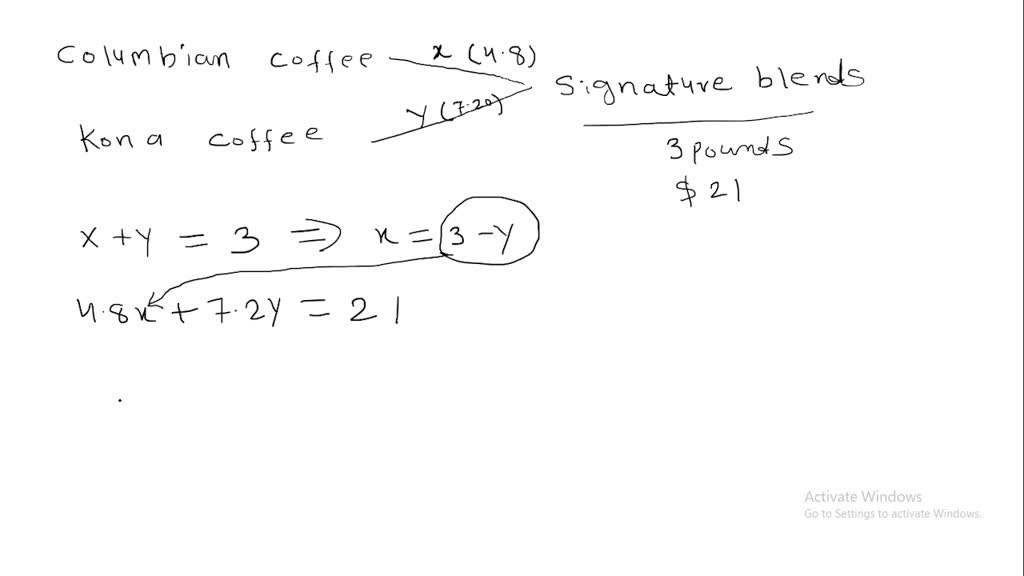 Columbian coffee x (4.8)
Signature blends
Kona coffee y (7.20)
3 pounds
$ 21
x + y = 3 ⇒ x = 3 - y
4.8x + 7.2y = 21
Activate Windows
Go to Settings to activate Windows.